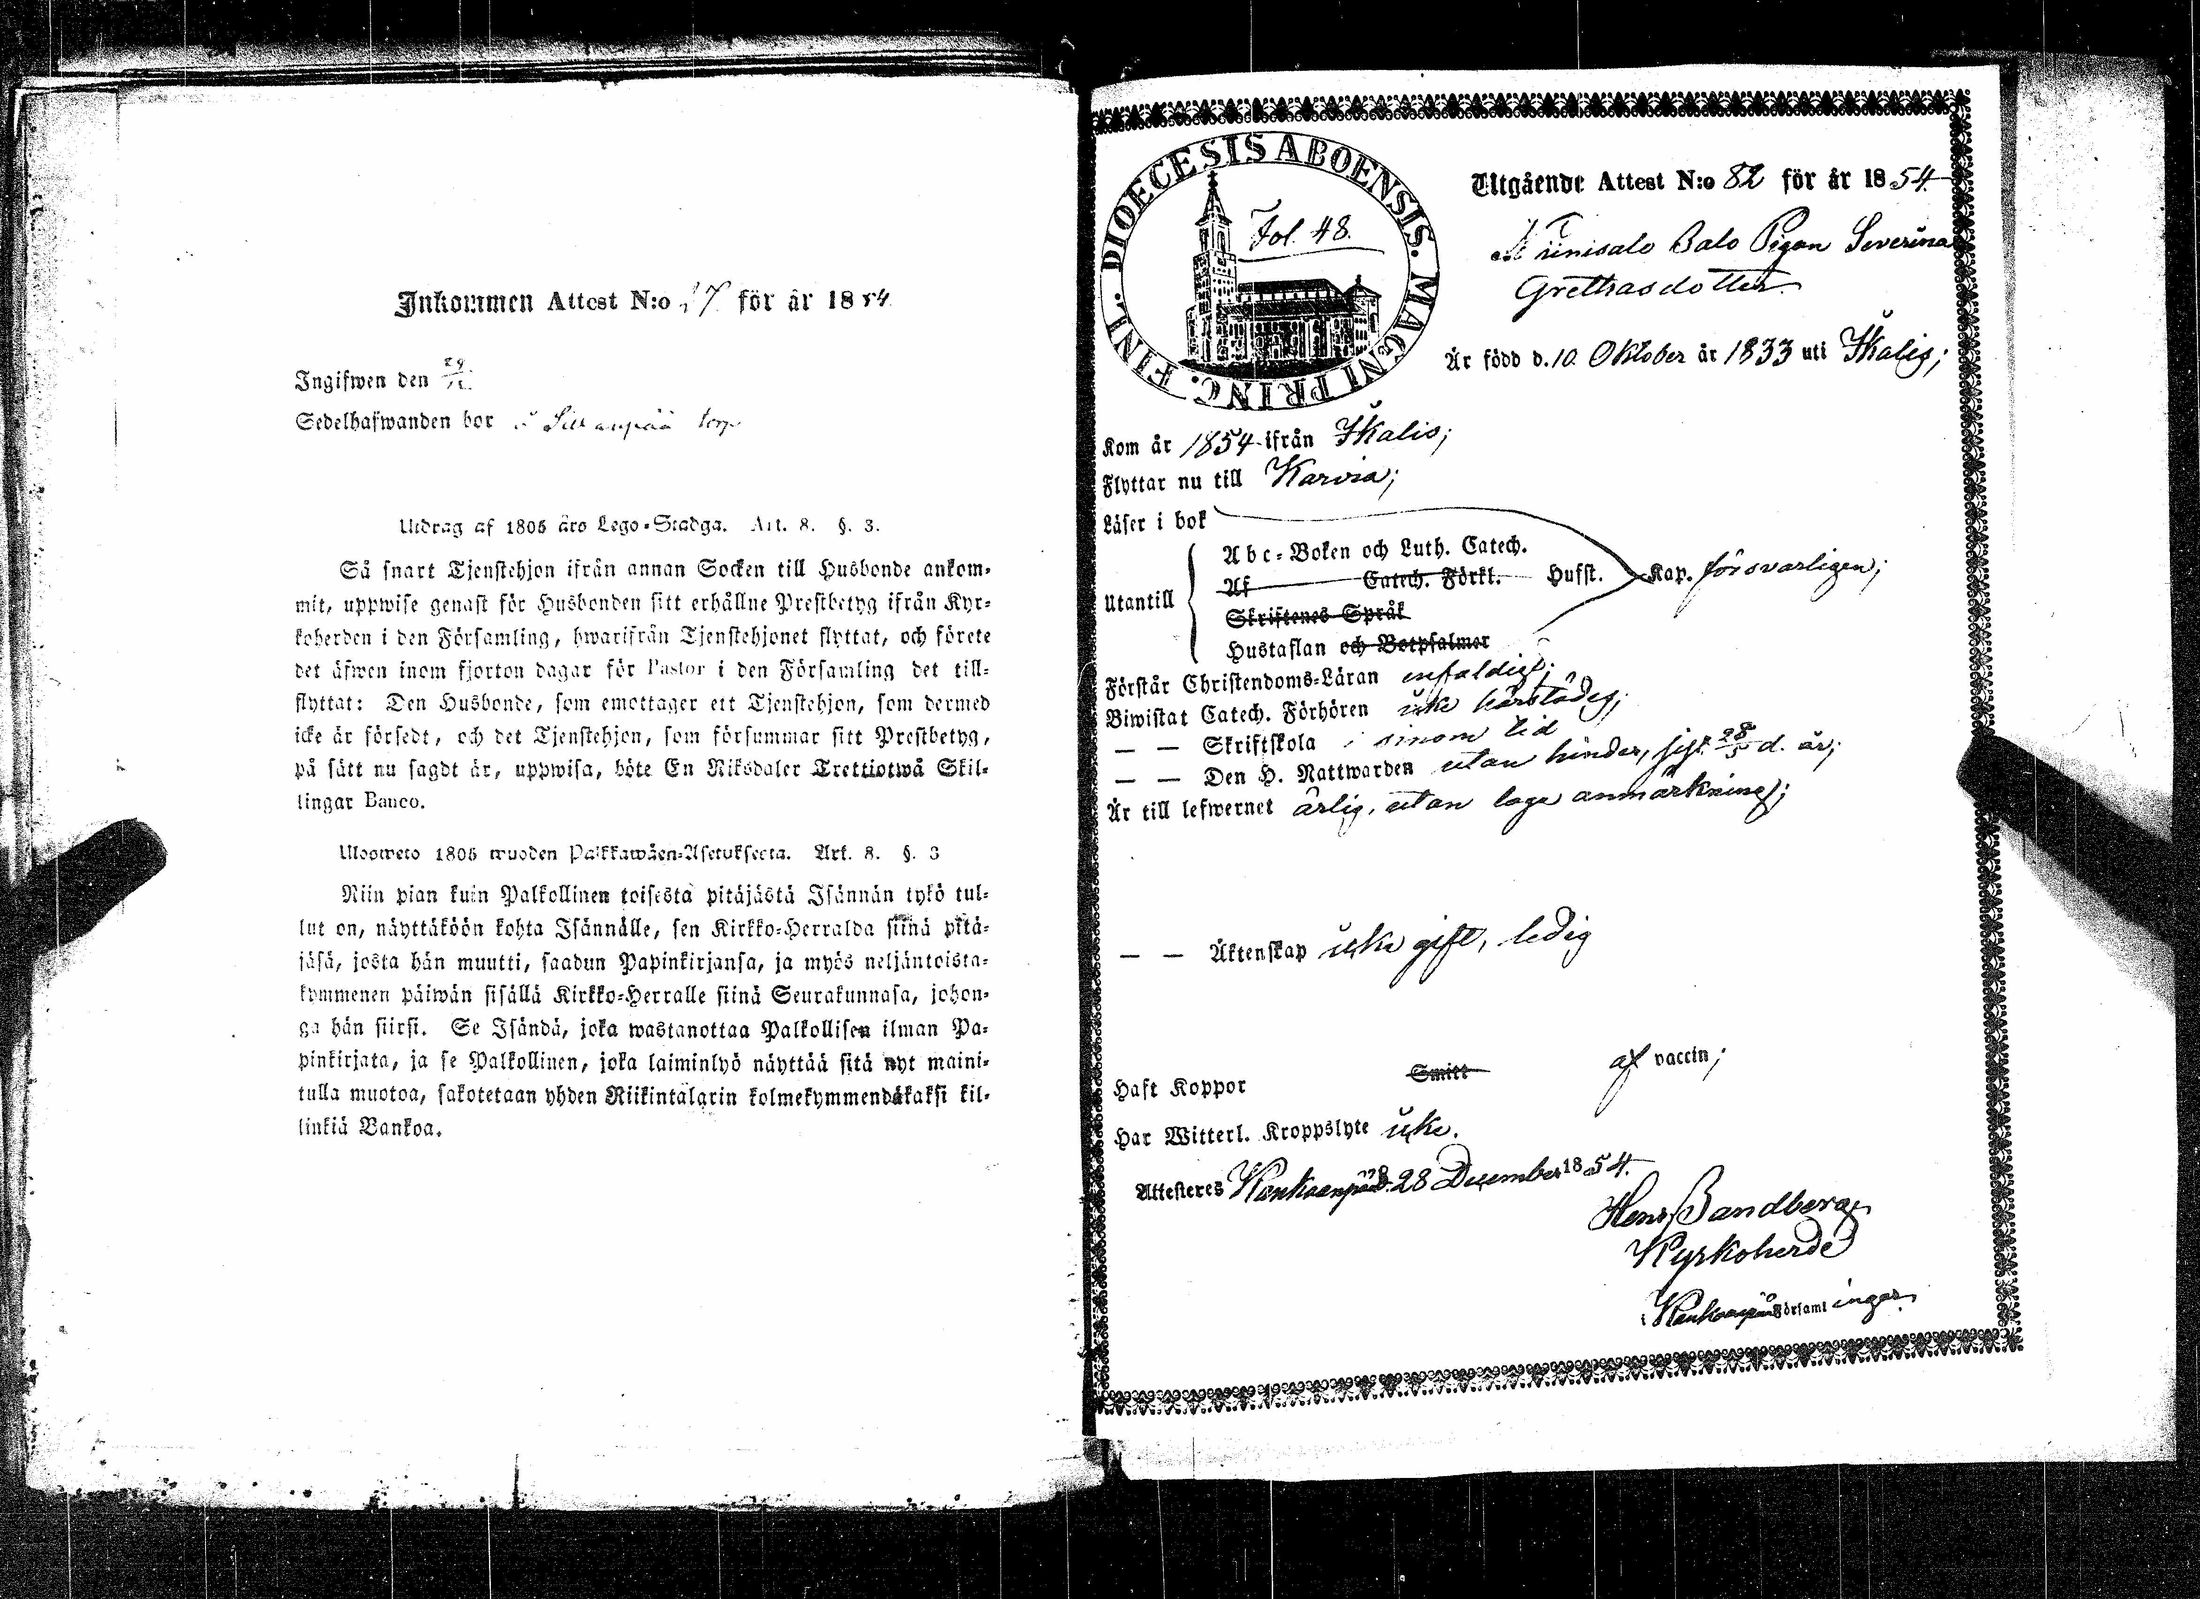 Inkommen Attest N:o 27 för år 1854
Ingifwen den 29/12.
Sedelhafwanden bor torp
Utdrag af 1805 års Lego-Stadga. Art. 8. §. 3.
Så snart Tjenstehjon ifrån annan Socken till Husbonde ankom-
mit, uppwise genast för Husbonden sitt erhållne Prestbetyg ifrån Kyr-
koherden i den Församling, hwarifrån Tjenstehjonet flyttat, och förete
det äfwen inom fjorton dagar för Pastor i den Församling det till-
flyttat: Den Husbonde, som emottager ett Tjenstehjon, som dermed
icke är försedt, och det Tjenstehjon, som försummar sitt Prestbetyg,
på sätt nu sagdt är, uppwisa, böte En Riksdaler Trettiotwå Skil-
lingar Banco.
Ulosweto 1805 wuoden Palkkawäen-Asetuksesta. Art. 8. §. 3
Niin pian kuin Palkollinen toisesta pitäjästä Isännän tykö tul-
lut on, näyttäköön kohta Isännälle, sen Kirkko-Herralda siinä pitä-
jäsä, josta hän muutti, saadun Papinkirjansa, ja myös neljäntoista-
kymmenen päiwän sisällä Kirkko-Herralle siinä Seurakunnasa, johon-
ga hän siirsi. Se Isändä, joka wastanottaa Palkollisen ilman Pa-
pinkirjata, ja se Palkollinen, joka laiminlyö näyttää sitä nyt maini-
tulla muotoa, sakotetaan yhden Riikintalarin kolmekymmendäkaksi kil-
linkiä Bankoa.
DIOECESIS ABOENSIS. MAGNI PRINC. FINL.
Fol. 48.
Utgående Attest N:o 82 för år 1854
Balo Pigan Severina
Grethasdotter
Är född d. 10 Oktober år 1833 uti Ikalis;
Kom år 1854 ifrån Ikalis;
Flyttar nu till Karvia;
Läser i bok
Utantill
Abc-Boken och Luth. Catech.
Af Catech. Förkl. Hufst. Kap. försvarligen;
Skriftenes Språk
Hustaflan och Botpsalmer
Förstår Christendoms-Läran enfaldigt;
Biwistat Catech. Förhören icke härstädes;
— — Skriftskola i sinom tid
— — Den H. Nattwarden utan hinder, sist 28/5 d. år;
Är till lefwernet ärlig, utan laga anmärkning;
— — Äktenskap icke gift, ledig
Haft Koppor Smitt af vaccin;
Har Witterl. Kroppslyte icke.
Attesteres Kankaanpää d. 28 December 1854.
Henr Sandberg
Kyrkoherde
i Kankaanpää Församlingar